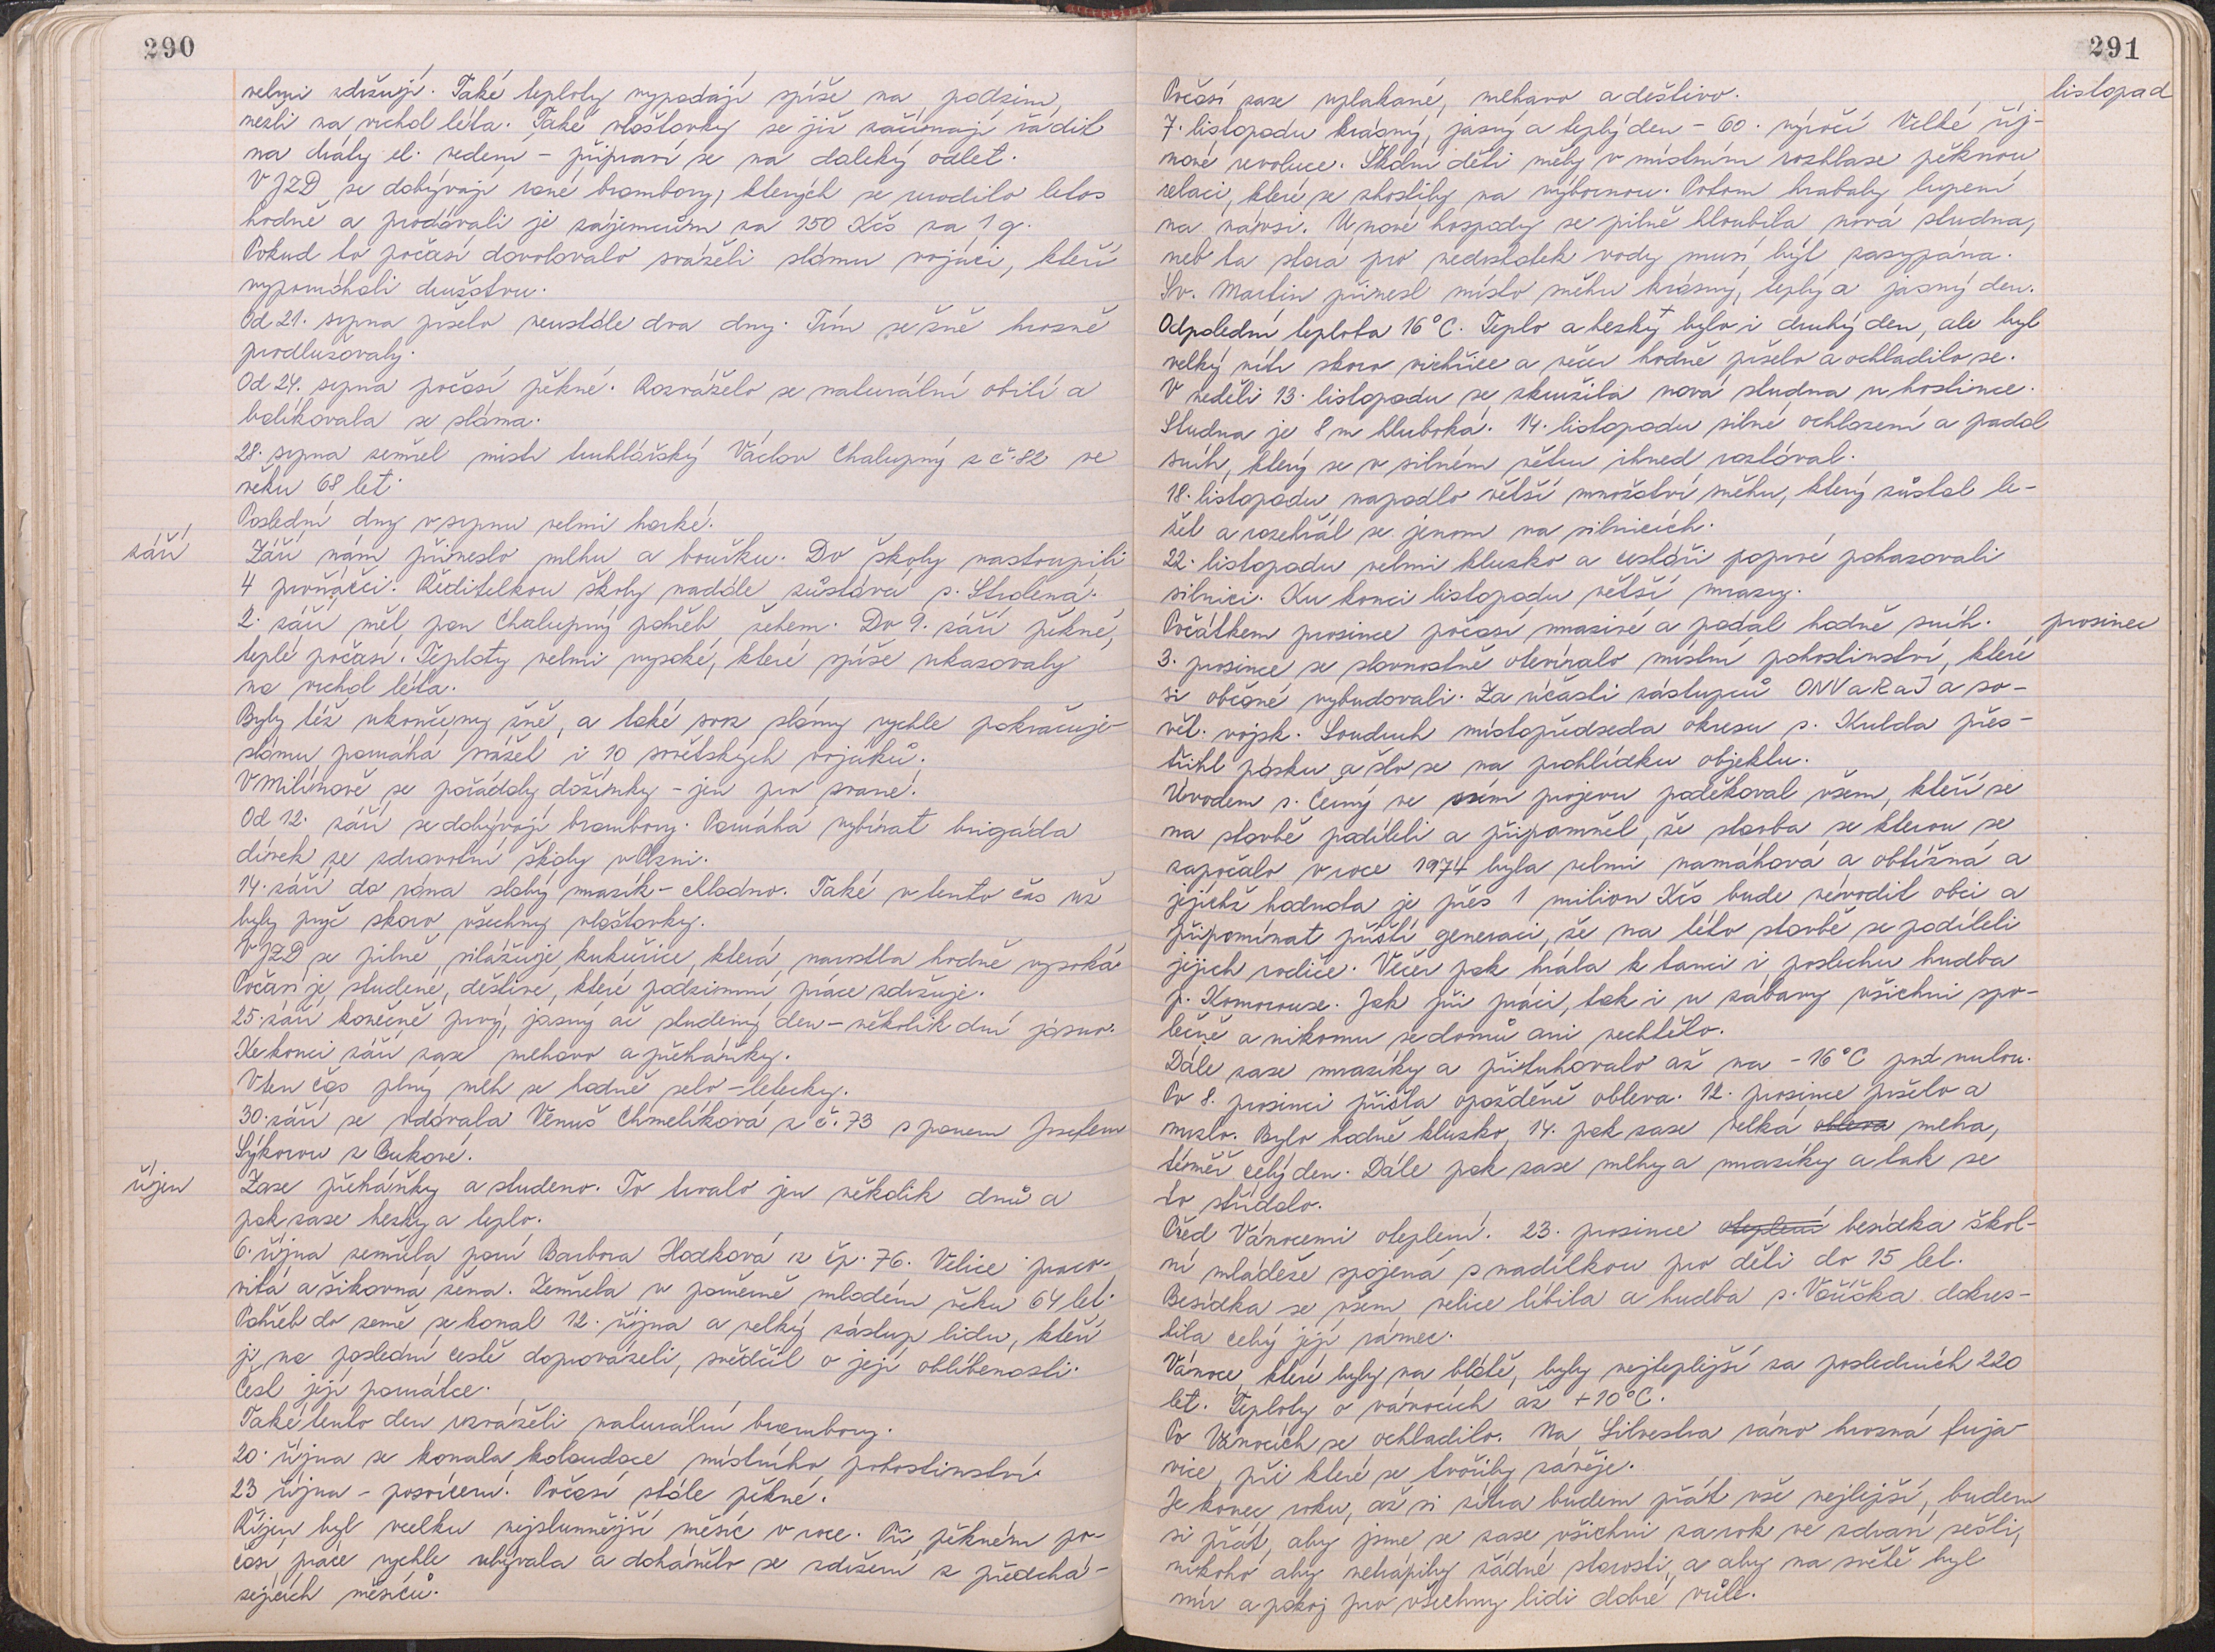 290
velmi zdržují. Také teploty vypadají spíše na podzim,
nežli na vrchol léta. Také vlaštovky se již začínají řádit
na dráty el. vedení - připraví se na daleký odlet.
V JZD se dobývají rané brambory, kterých se urodilo letos
hodně a prodávali je zájemcům za 150 Kčs za 1 q.
Pokud to počasí dovolovalo sváželi slámu vojáci, kteří
vypomáhali družstvu.
Od 21. srpna pršelo neustále dva dny. Tím se žně hrozně
prodlužovaly.
Od 24. srpna počasí pěkné. Rozváželo se naturální obilí a
balíkovala se sláma.
28. srpna zemřel mistr truhlářský Václav Chalupný z č. 82 ve
věku 68 let.
Poslední dny v srpnu velmi horké.
září
Září nám přineslo mlhu a bouřku. Do školy nastoupili
4 prvňáčci. Ředitelkou školy nadále zůstává s. Strolená.
2. září měl pan Chalupný pohřeb žehem. Do 9. září pěkné,
teplé počasí. Teploty velmi vysoké, které spíše ukazovaly
na vrchol léta.
Byly též ukončeny žně, a také svoz slámy rychle pokračuje
slámu pomáhá svážet i 10 sovětských vojáků.
V Milínově se pořádaly dožínky - jen pro zvané.
Od 12. září se dobývají brambory. Pomáhá vybírat brigáda
dívek ze zdravotní školy v Plzni.
14. září do rána slabý mrazík - chladno. Také v tento čas už
byly pryč skoro všechny vlaštovky.
V JZD se pilně silážuje kukuřice, která narostla hodně vysoká
Počasí je studené, deštivé, které podzimní práce zdržuje.
25. září konečně prvý, jasný ač studený den - několik dní jasno.
Ke konci září zase mlhavo a přeháňky.
V ten čas plný mlh se hodně letecky.
30. září se vdávala Venuš Chmelíková z č. 73 s panem Josefem
Sýkorou z Bukové.
říjen
Zase přeháňky a studeno. To trvalo jen několik dnů a
pak zase hezky a teplo.
6. října zemřela paní Barbora Hodková z čp. 76. Velice praco-
vitá a šikovná žena. Zemřela v poměrně mladém věku 64 let.
Pohřeb do země se konal 12. října a velký zástup lidu, kteří
ji na poslední cestě doprovázeli, svědčil o její oblíbenosti.
Čest její památce.
Také tento den rozváželi naturální brambory.
20. října se konala kolaudace místního pohostinství.
23 října - posvícení. Počasí stále pěkné.
Říjen byl vcelku nejslunnější měsíc v roce. Při pěkném po-
časí práce rychle ubývala a dohánělo se zdržení z předchá-
zejících měsíců.
291
listopad
Počasí zase uplakané, mlhavo a deštivo.
7. listopadu krásný, jasný a teplý den - 60. výročí Velké říj-
nové revoluce. Školní děti měly v místním rozhlase pěknou
relaci, které se zhostily na výbornou. Potom hrabaly lupení
na návsi. U nové hospody se pilně hloubila nová studna,
neb ta stará pro nedostatek vody musí být zasypána.
Sv. Martin přinesl místo sněhu krásný, teplý a jasný den.
Odpolední teplota 16°C. Teplo a hezky bylo i druhý den, ale byl
velký vítr skoro vichřice a večer hodně pršelo a ochladilo se.
V neděli 13. listopadu se skružila nová studna u hostince.
Studna je 8 m hluboká. 14. listopadu silné ochlazení a padal
sníh, který se v silném větru ihned roztával.
18. listopadu napadlo větší množství sněhu, který zůstal le-
žet a rozehřál se jenom na silnicích.
22. listopadu velmi kluzko a cestáři poprvé pohazovali
silnici. Ku konci listopadu větší mrazy.
prosinec
Počátkem prosince počasí mrazivé a padal hodně sníh.
3. prosince se slavnostně otevíralo místní pohostinství, které
si občané vybudovali. Za účasti zástupců ONV a RaJ a so-
vět. vojsk. Soudruh místopředseda okresu s. Kulda přes-
třihl pásku a šlo se na prohlídku objektu.
Úvodem s. Černý ve svém projevu poděkoval všem, kteří se
na stavbě podíleli a připomněl, že stavba se kterou se
započalo v roce 1974 byla velmi namáhavá a obtížná a
jejíchž hodnota je přes 1 milion Kčs bude sévodit obci a
připomínat příští generaci, že na této stavbě se podíleli
jejich rodiče. Večer pak hrála k tanci i poslechu hudba
p. Komorouse. Jak při práci, tak i u zábavy všichni spo-
lečně a nikomu se domů ani nechtělo.
Dále zase mrazíky a přituhovalo až na -16°C pod nulou.
Po 8. prosinci přišla opožděně obleva. 12. prosince pršelo a
mrzlo. Bylo hodně kluzko, 14. pak zase velká obleva mlha,
téměř celý den. Dále pak zase mlhy a mrazíky a tak se
to střídalo.
Před Vánocemi oteplení. 23. prosince oteplení besídka škol-
ní mládeže spojená s nadílkou pro děti do 15 let.
Besídka se všem velice líbila a hudba s. Voříška dokres-
lila celý její rámec.
Vánoce, které byly na blátě, byly nejteplejší za posledních 220
let. Teploty o vánocích až +10°C.
Po Vánocích se ochladilo. Na Silvestra ráno hrozná fuja-
vice, při které se tvořily závěje.
Je konec roku, až si zítra budem přát vše nejlepší, budem
si přát, aby jsme se zase všichni za rok ve zdraví sešli,
nikoho aby netrápily žádné starosti, a aby na světě byl
mír a pokoj pro všechny lidi dobré vůle.